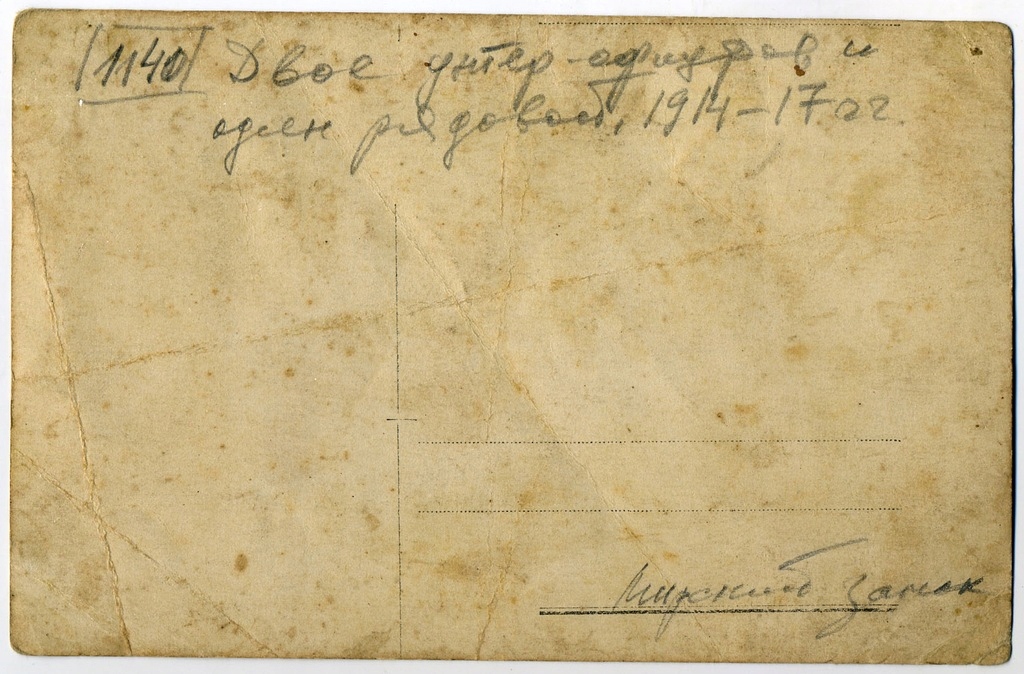 1140 Двое унтер-офицеров и
один рядовой, 1914-17 гг.
Мирский замок